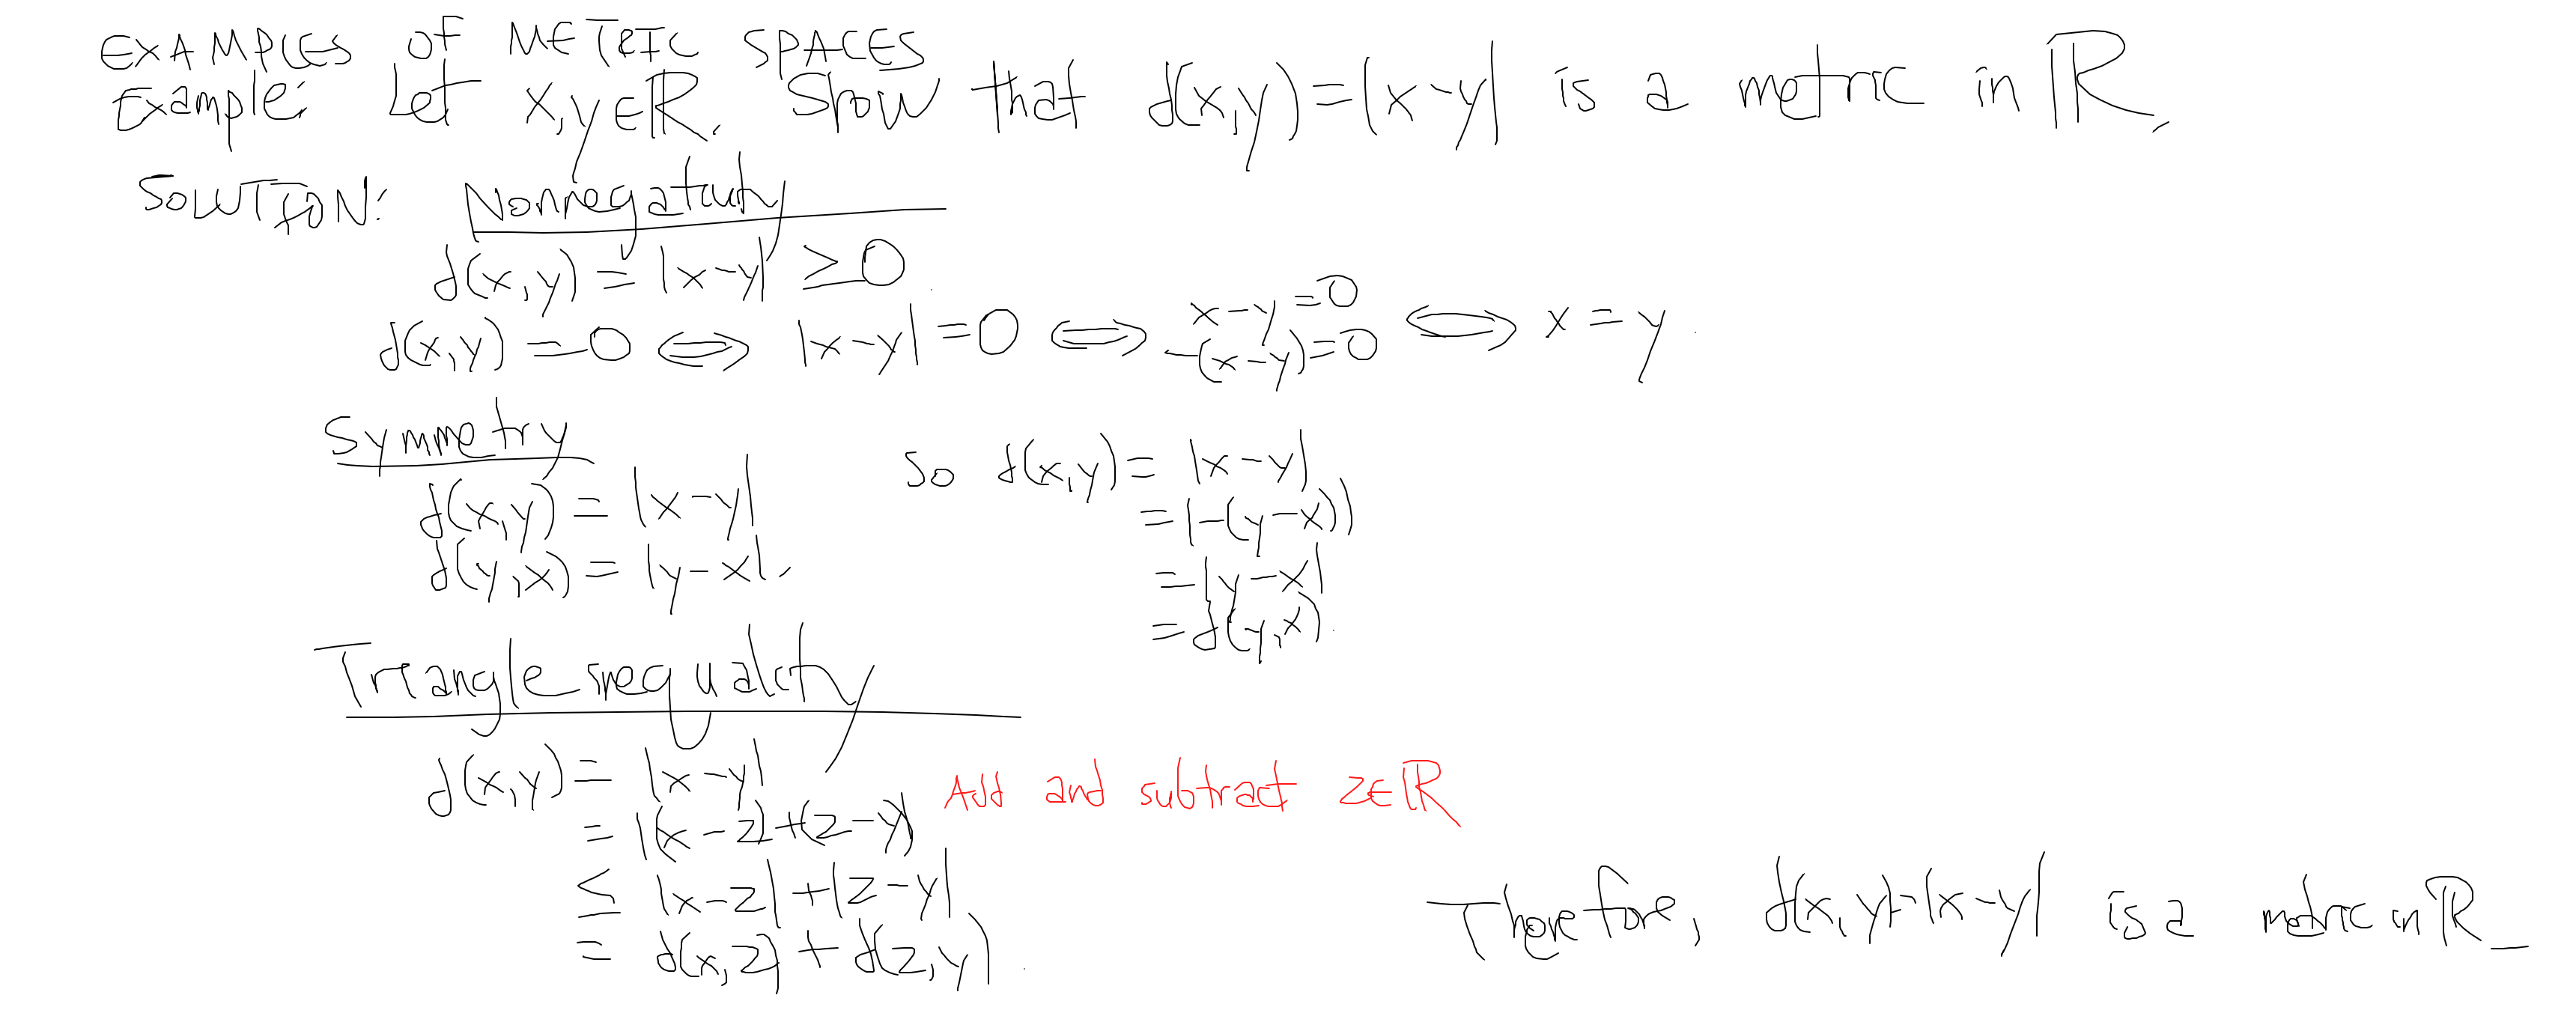 EXAMPLES OF METRIC SPACES
Example: Let x,y∈ℝ. Show that d(x,y)=|x-y| is a metric in ℝ.
SOLUTION: Nonnegativity
d(x,y) = |x-y| ≥ 0.
d(x,y) = 0 ⟺ |x-y| = 0 ⟺ x-y=0 ⟺ x = y.
-(x-y)=0
Symmetry
d(x,y) = |x-y|
d(y,x) = |y-x|.
So d(x,y) = |x-y|
= |-(y-x)|
= |y-x|
= d(y,x).
Triangle inequality
d(x,y) = |x-y|
= |(x-z)+(z-y)| Add and subtract z∈ℝ
≤ |x-z| + |z-y|
= d(x,z) + d(z,y).
Therefore, d(x,y)=|x-y| is a metric in ℝ.